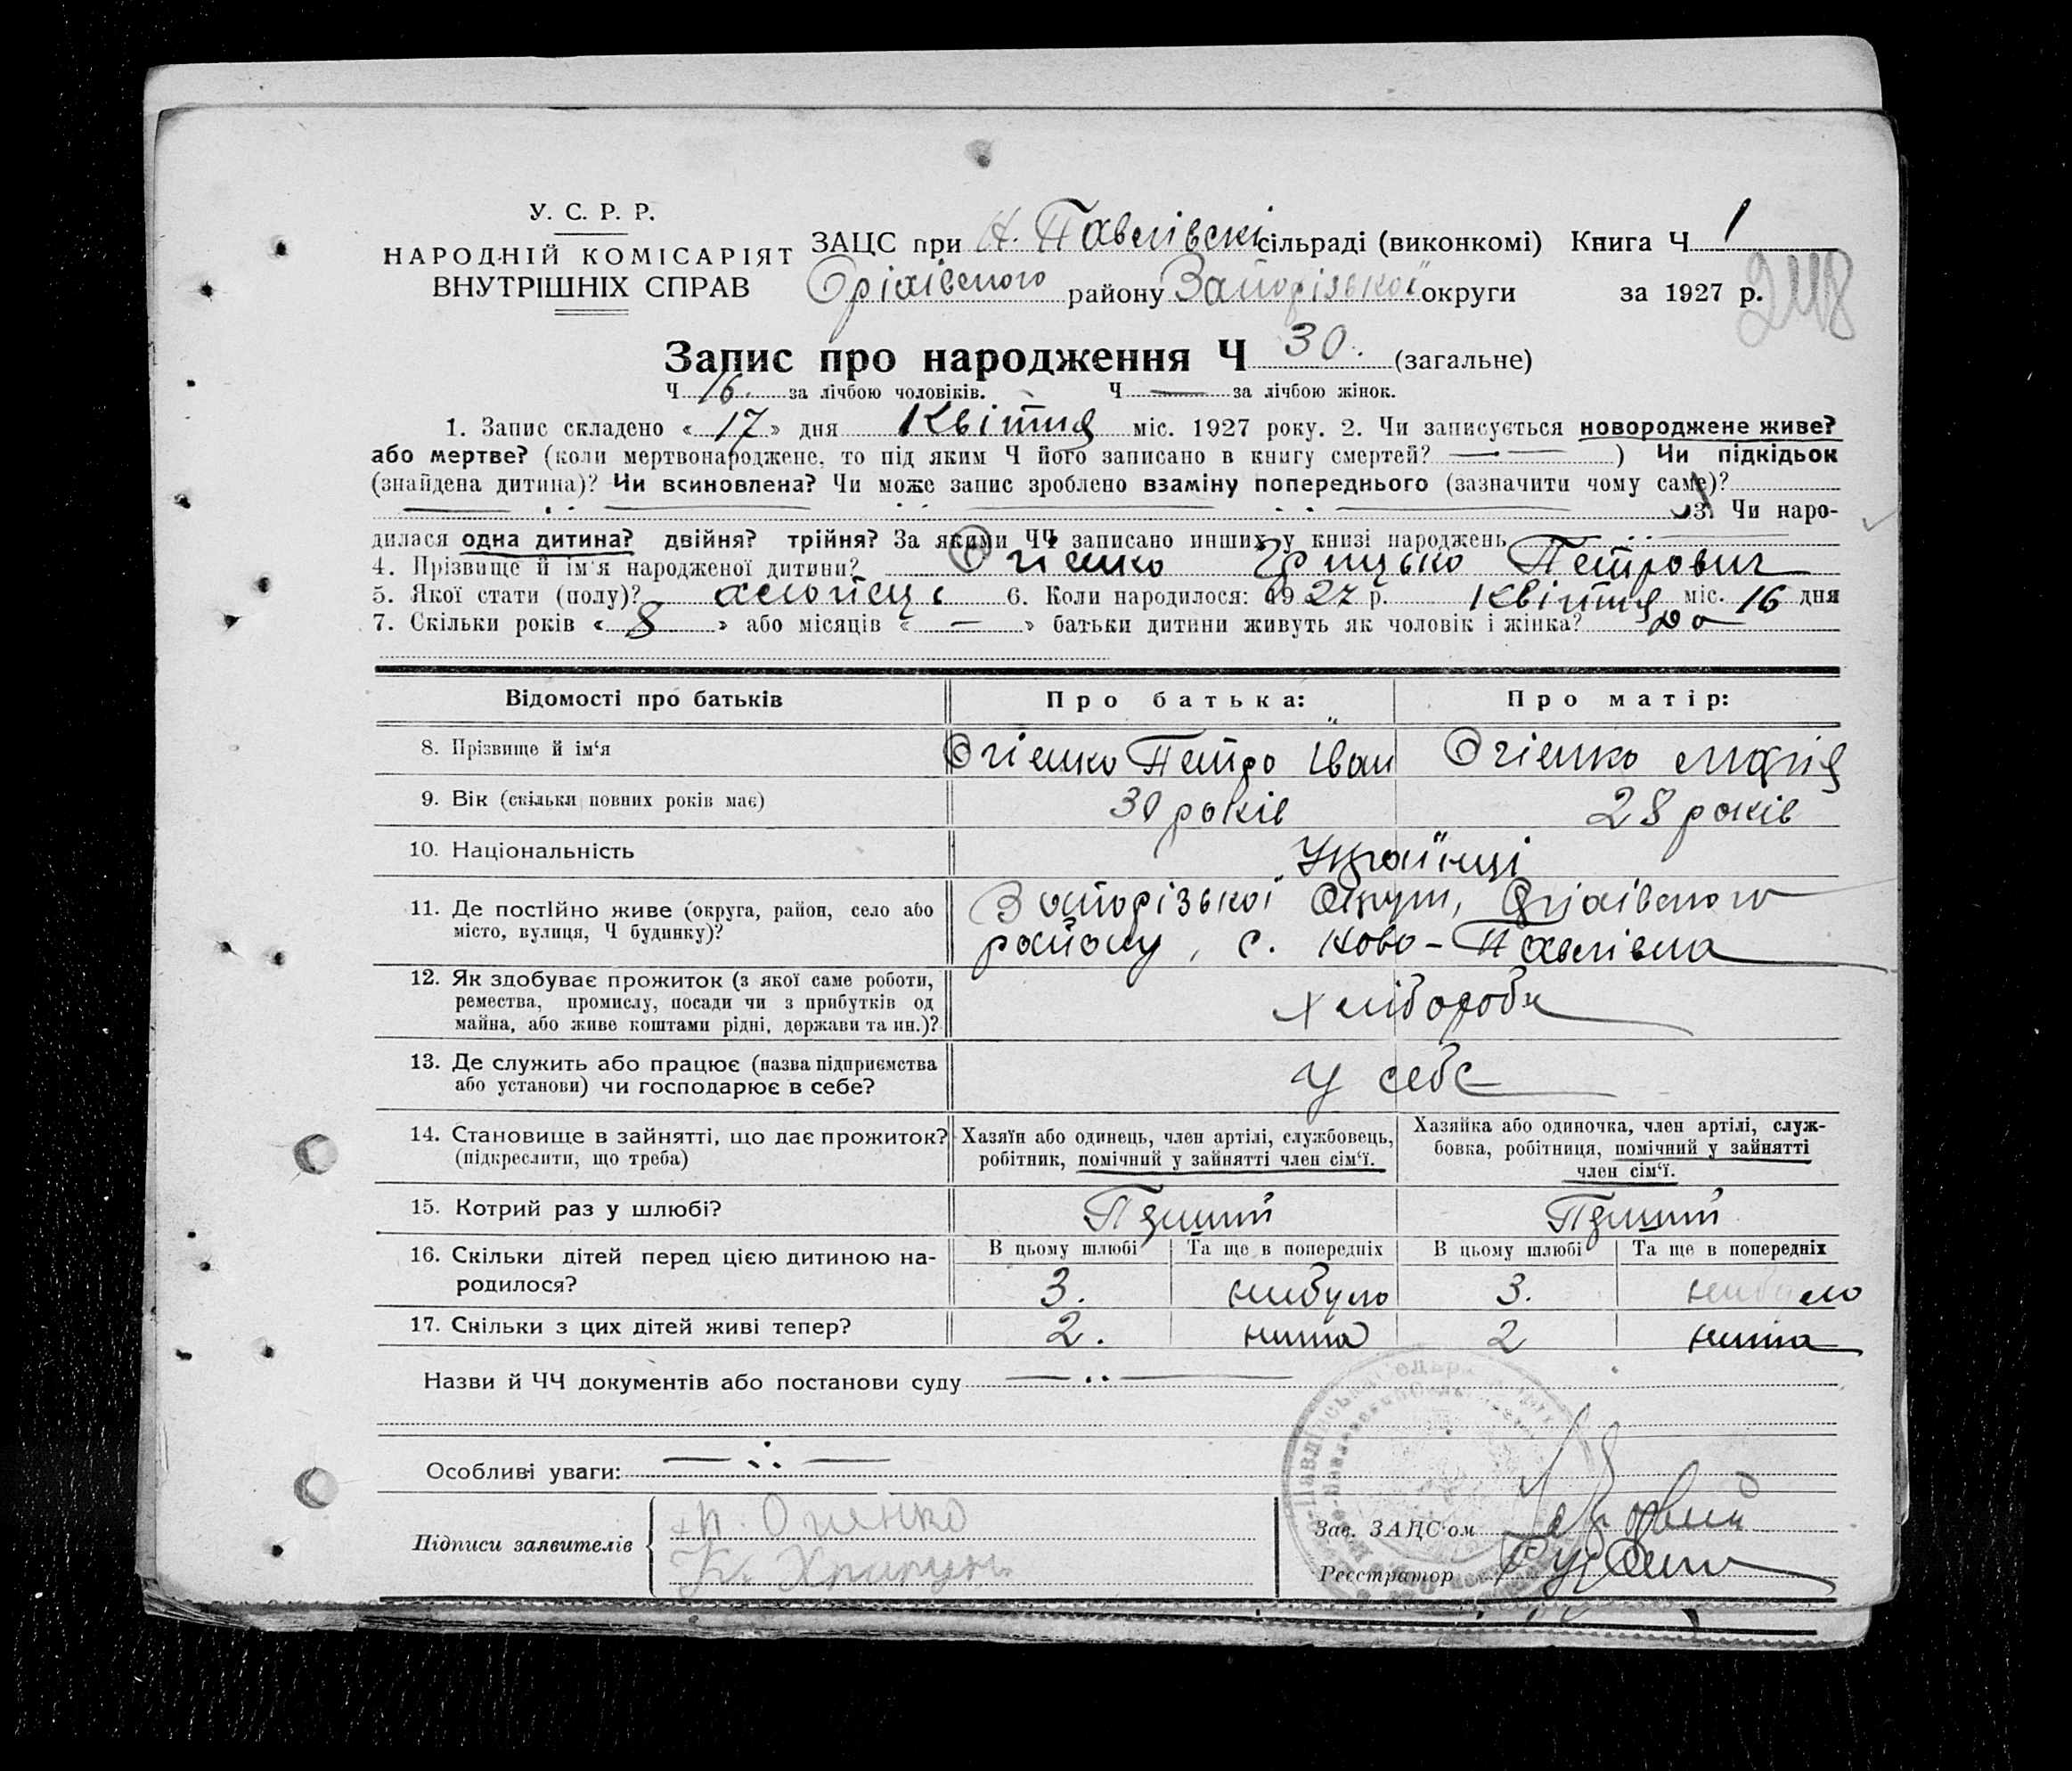 У. С. Р. Р.
НАРОДНІЙ КОМІСАРІЯТ
ВНУТРІШНІХ СПРАВ
ЗАЦС при Н. Павлівскі сільраді (виконкомі) Книга Ч 1
Оріхівского району Запорізької округи за 1927 р.
248
Запис про народження Ч 30. (загальне)
Ч 16. за лічбою чоловіків. Ч — за лічбою жінок.
1. Запис складено «17» дня Квітня міс. 1927 року. 2. Чи записується новороджене живе?
або мертве? (коли мертвонароджене, то під яким Ч його записано в книгу смертей? — — ) Чи підкідьок
(знайдена дитина)? Чи всиновлена? Чи може запис зроблено взаміну попереднього (зазначити чому саме)?
3. Чи наро-
дилася одна дитина? двійня? трійня? За якими ЧЧ записано инших у книзі народжень
4. Прізвище й ім'я народженої дитини? Огієнко Грицько Петрович
5. Якої стати (полу)? хлопець 6. Коли народилося: 1927 р. Квітня міс. 16 дня
7. Скільки років «8» або місяців «—» батьки дитини живуть як чоловік і жінка? да
Відомості про батьків Про батька: Про матір:
8. Прізвище й ім'я Огієнко Петро Іван Огієнко Марія
9. Вік (скільки повних років має) 30 років 28 років
10. Національність Українці
11. Де постійно живе (округа, район, село або
місто, вулиця, Ч будинку)?
Запорізької Округи, Оріхівского
району, с. Ново-Павлівка
12. Як здобуває прожиток (з якої саме роботи,
ремества, промислу, посади чи з прибутків од
майна, або живе коштами рідні, держави та ин.)?
Хлібороби
13. Де служить або працює (назва підприємства
або установи) чи господарює в себе?
У себе
14. Становище в зайнятті, що дає прожиток?
(підкреслити, що треба)
Хазяїн або одинець, член артілі, службовець,
робітник, помічний у зайнятті член сім'ї.
Хазяйка або одиночка, член артілі, служ-
бовка, робітниця, помічний у зайнятті
член сім'ї.
15. Котрий раз у шлюбі? Пєший Пєший
16. Скільки дітей перед цією дитиною на-
родилося?
В цьому шлюбі Та ще в попередніх В цьому шлюбі Та ще в попередніх
3. небуло 3. небуло
17. Скільки з цих дітей живі тепер? 2. нима 2 нима
Назви й ЧЧ документів або постанови суду
Особливі уваги:
Підписи заявителів
П. Огиенко
Зав. ЗАЦС'ом
Реєстратор